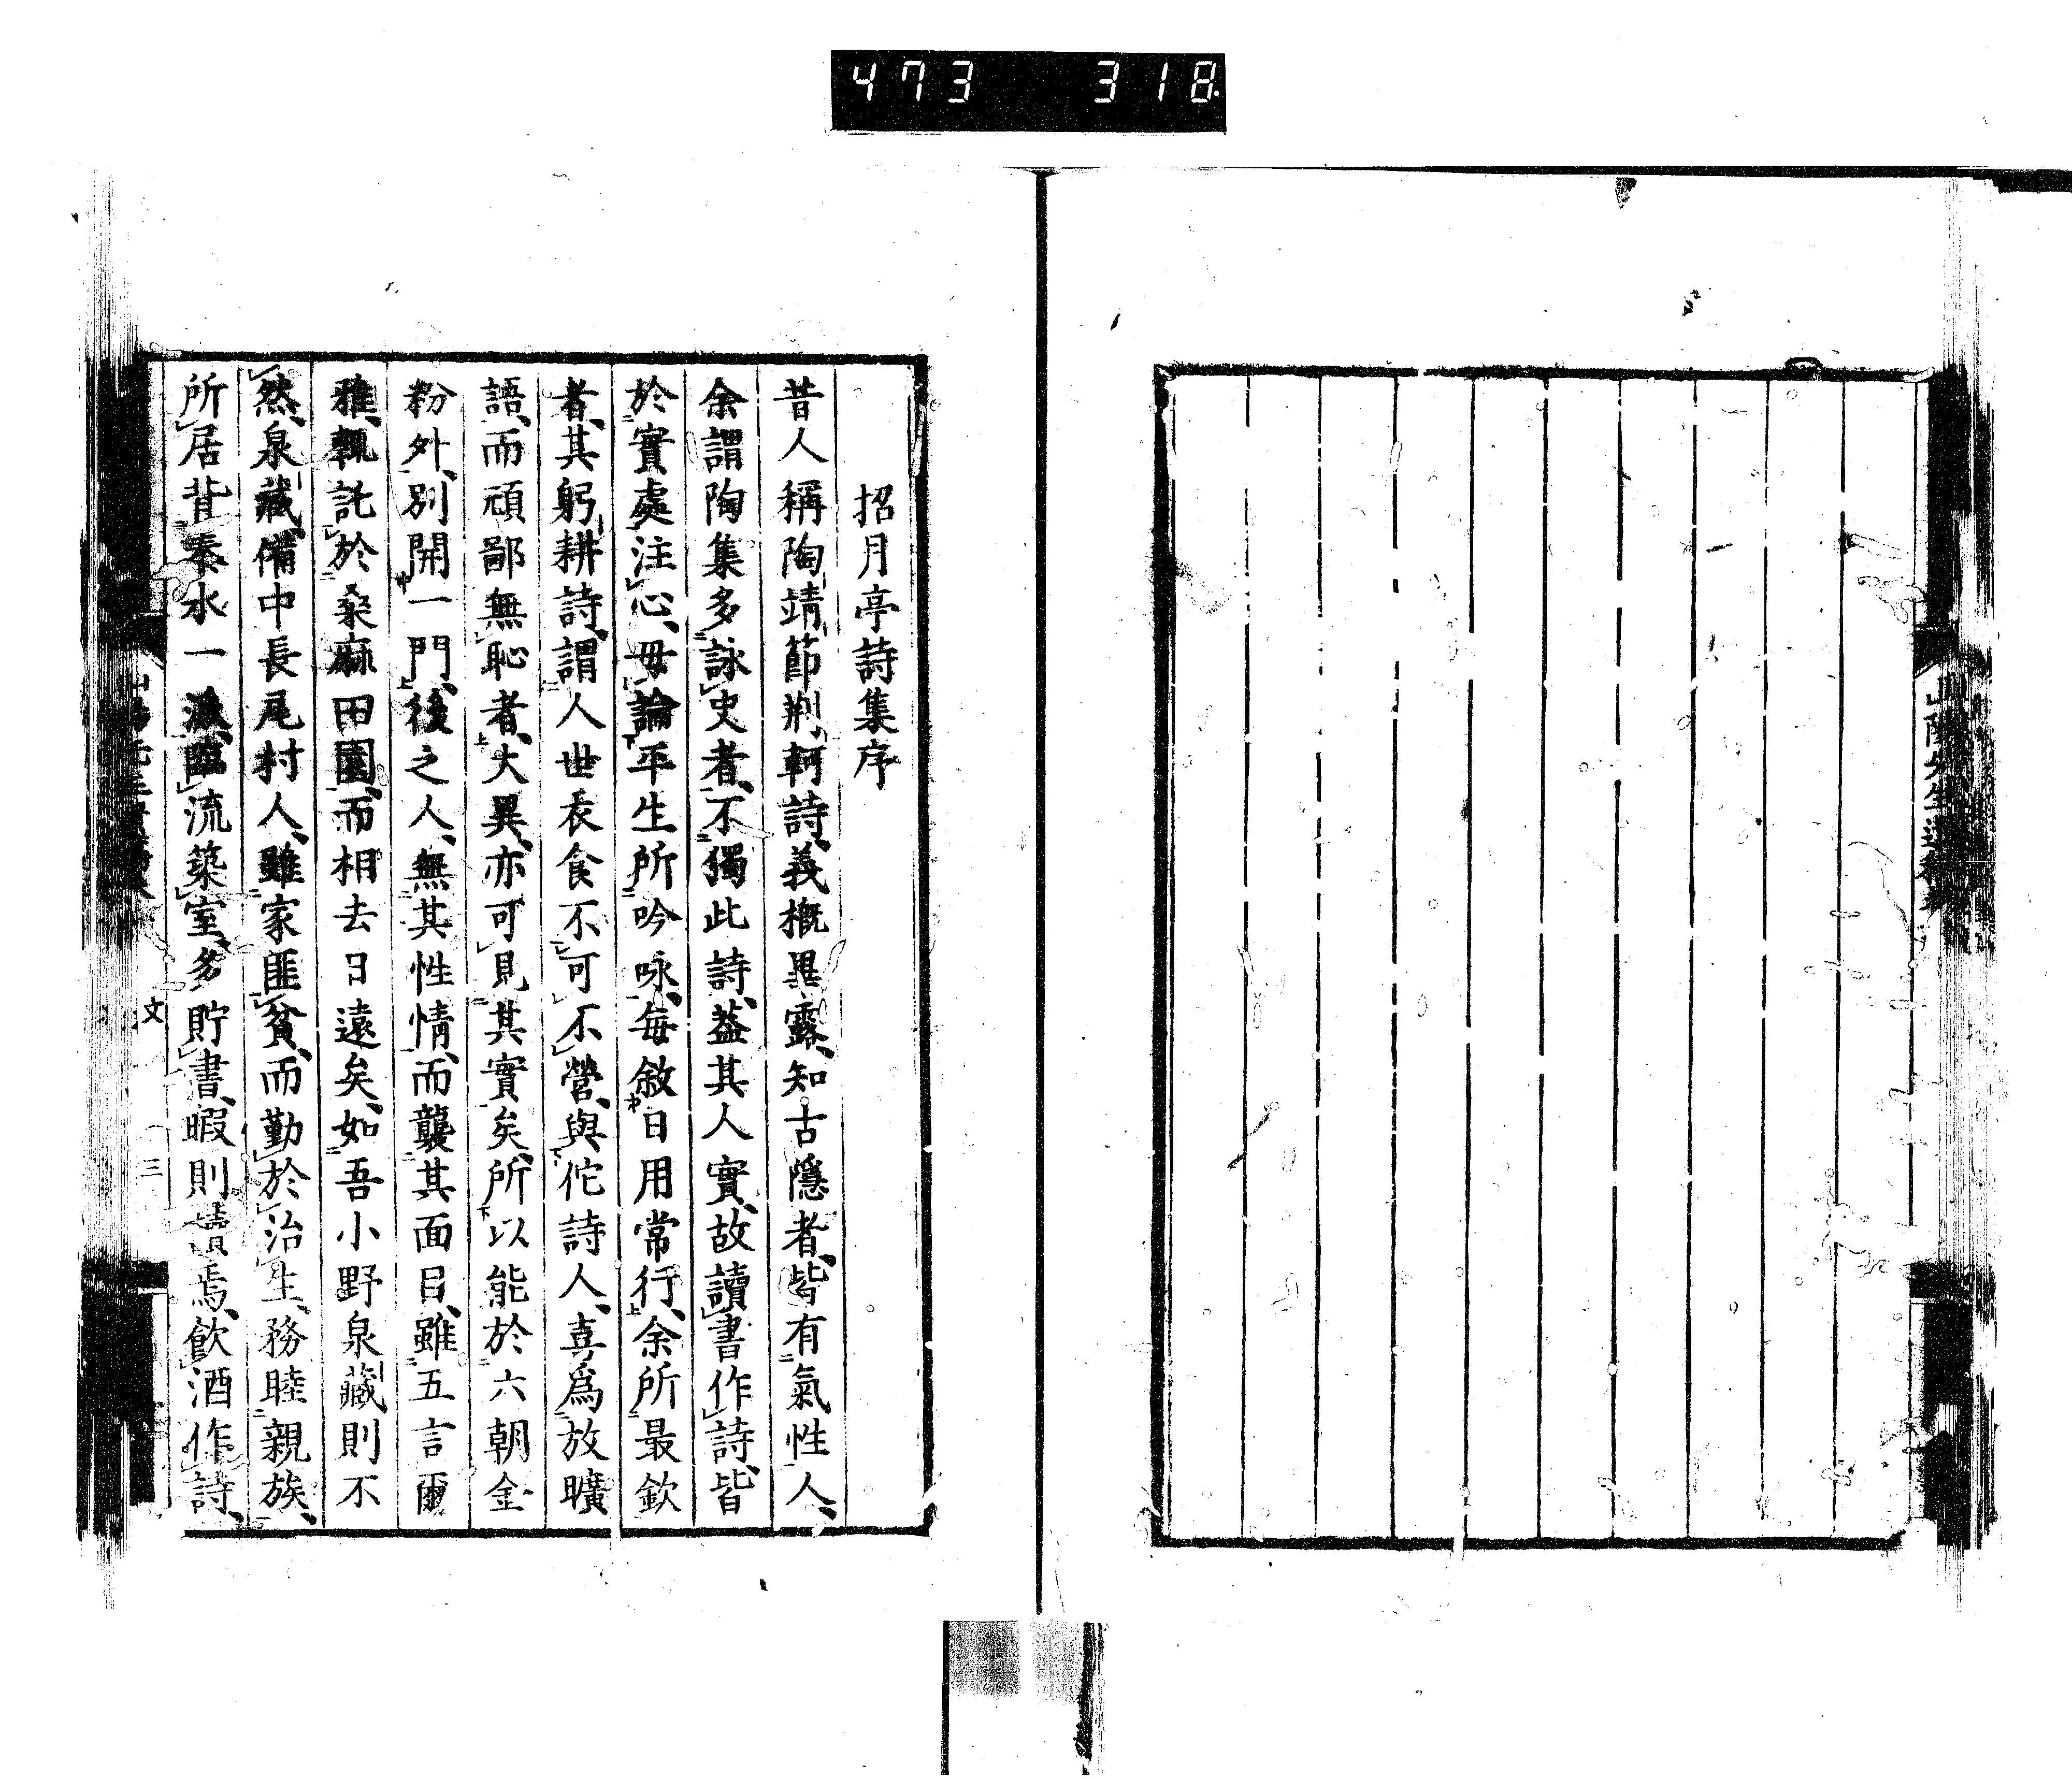 473 318
招月亭詩集序
昔人稱陶靖節荊軻詩、義概畢露、知古隱者、皆有氣性人、
余謂陶集多詠史者、不獨此詩、蓋其人實、故讀書作詩、皆
於實處注心、毋論平生所吟咏、每敘日用常行、余所最欽
者、其躬耕詩、謂人世衣食不可不營、與佗詩人、喜爲放曠
語、而頑鄙無恥者、大異、亦可見其實矣、所以能於六朝金
粉外、別開一門、後之人、無其性情、而襲其面目、雖五言爾
雅、輒託於桑麻田園、而相去日遠矣、如吾小野泉藏則不
然、泉藏備中長尾村人、雖家匪貧、而勤於治生、務睦親族、
所居背秦水一派、臨流築室、多貯書、暇則讀焉、飲酒作詩、
文 三